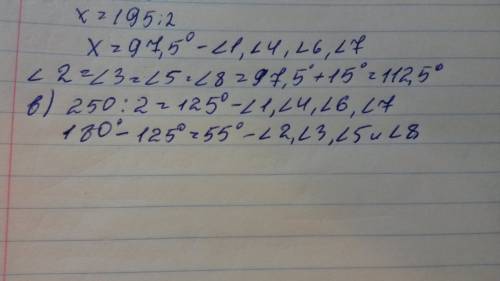 x = 195:2
x = 97,5° - ∠1, ∠4, ∠6, ∠7
∠2 = ∠3 = ∠5 = ∠8 = 97,5° + 15° = 112,5°
в) 250 : 2 = 125° - ∠1, ∠4, ∠6, ∠7
180° - 125° = 55° - ∠2, ∠3, ∠5 и ∠8